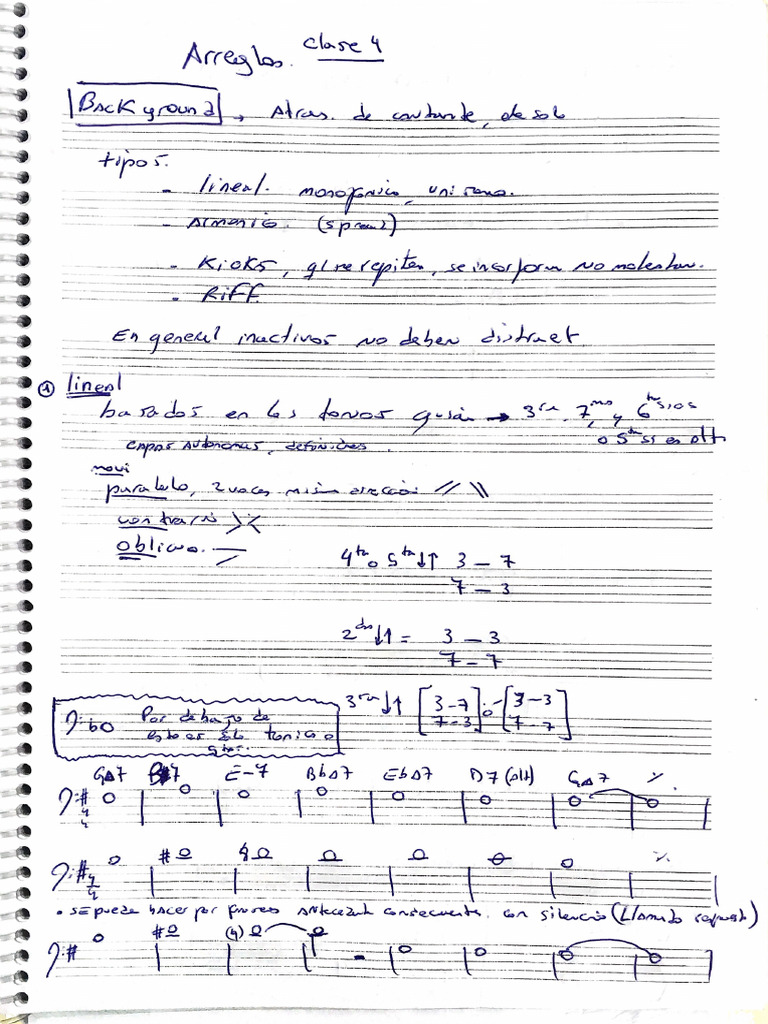 Arreglos. Clase 4
Background → Atras. de cantante, de solo
tipos.
- lineal. monofonico, unisono.
- Armonia. (spread)
- Kicks, que no molestan.
- Riff
En general inactivos no deben distraer.
① lineal
basados en los tonos guia → 3ra, 7mas y 6tas
o 5ta si es alt
capas autonomas, definidas.
movi
paralelo, 2 voces misma dirección // \\
contrario
oblicuo.
4ta o 5ta ↓↑ 3 – 7
7 – 3
2das ↓↑ = 3 – 3
7 – 7
3ra ↓↑ [3-7 7-3] o [3-3 7-7]
Por debajo de
estas solo tonica o
5tas.
G△7 E-7 Bb△7 Eb△7 D7(alt) G△7 ٪.
• Se puede hacer por antecedente consecuente. con silencio (Llamado respuesta)